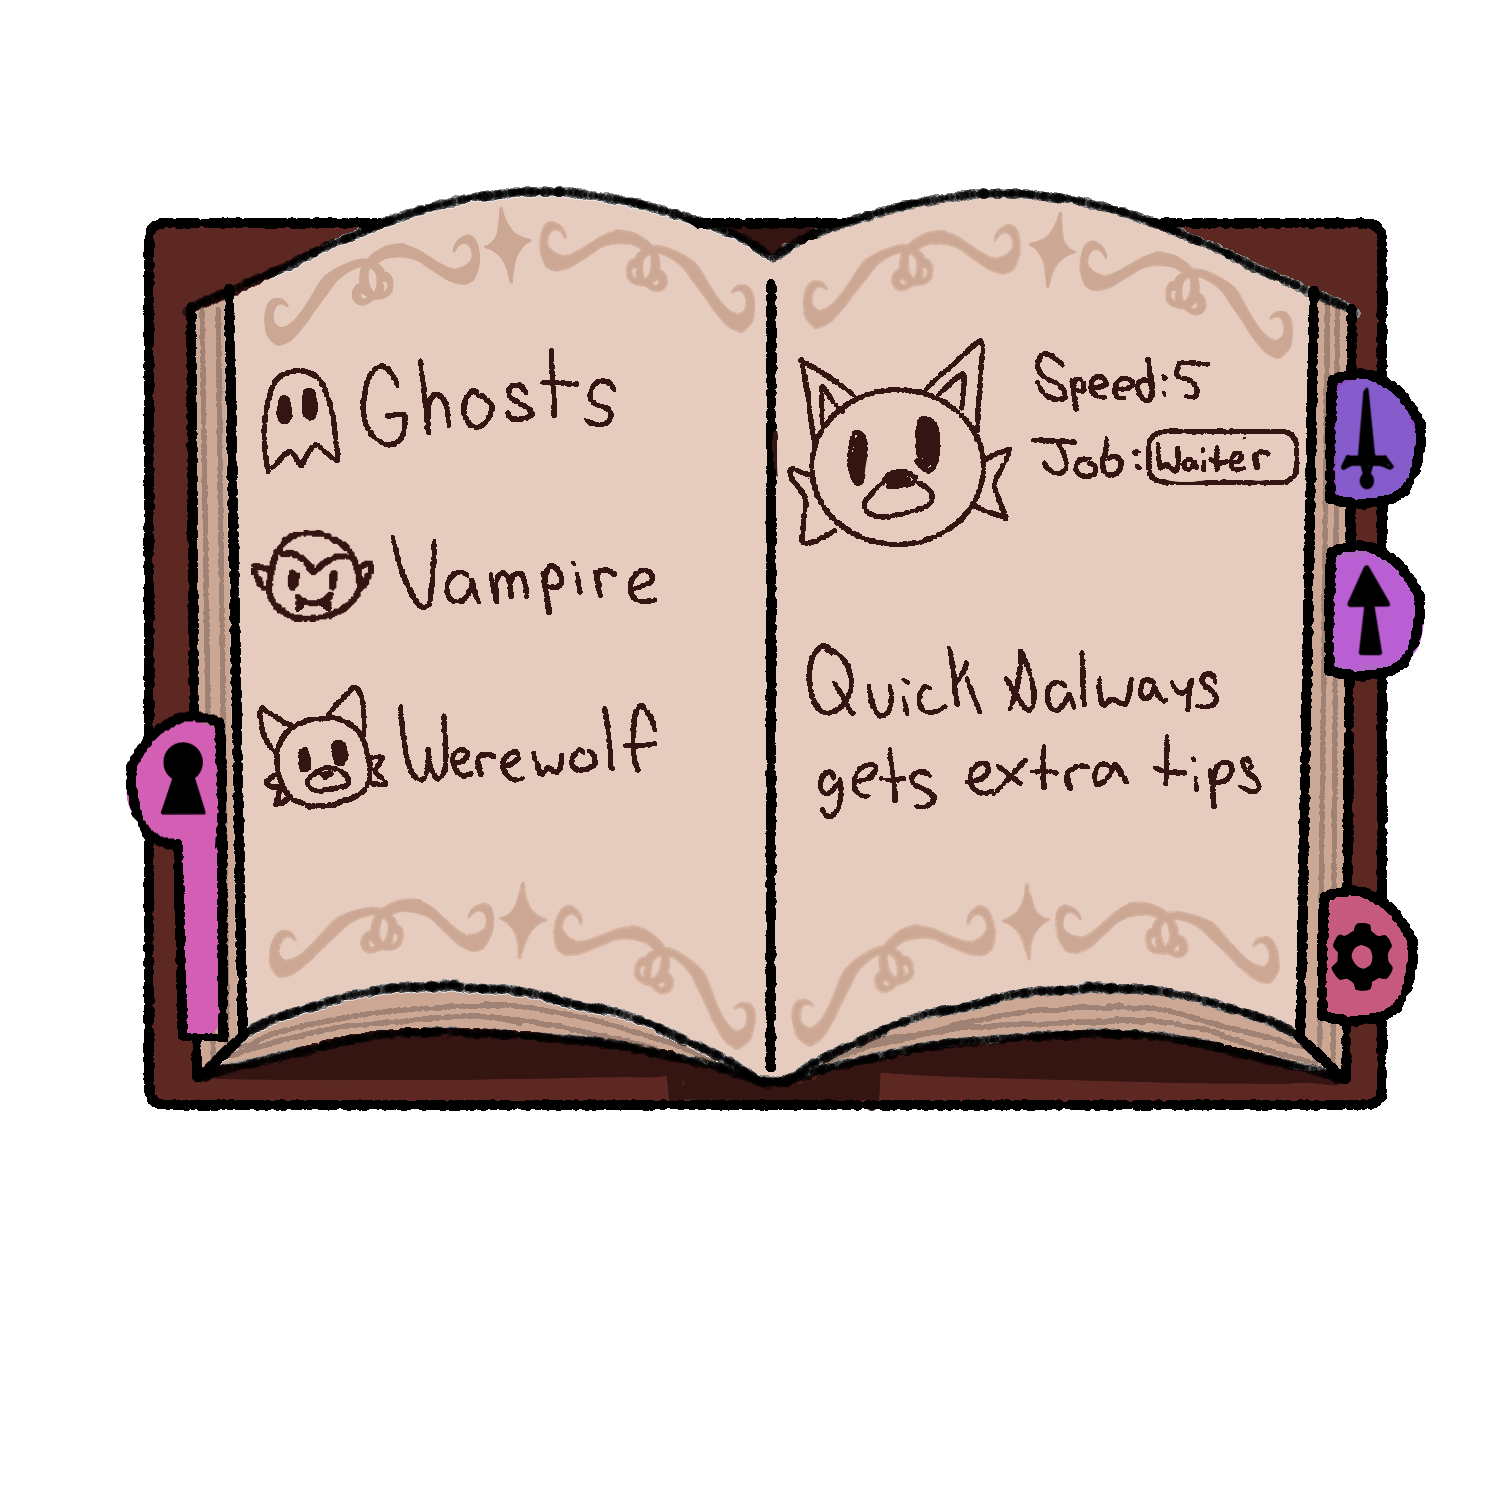 Ghosts
Vampire
Werewolf
Speed:5
Job: Waiter
Quick Aalways
gets extra tips